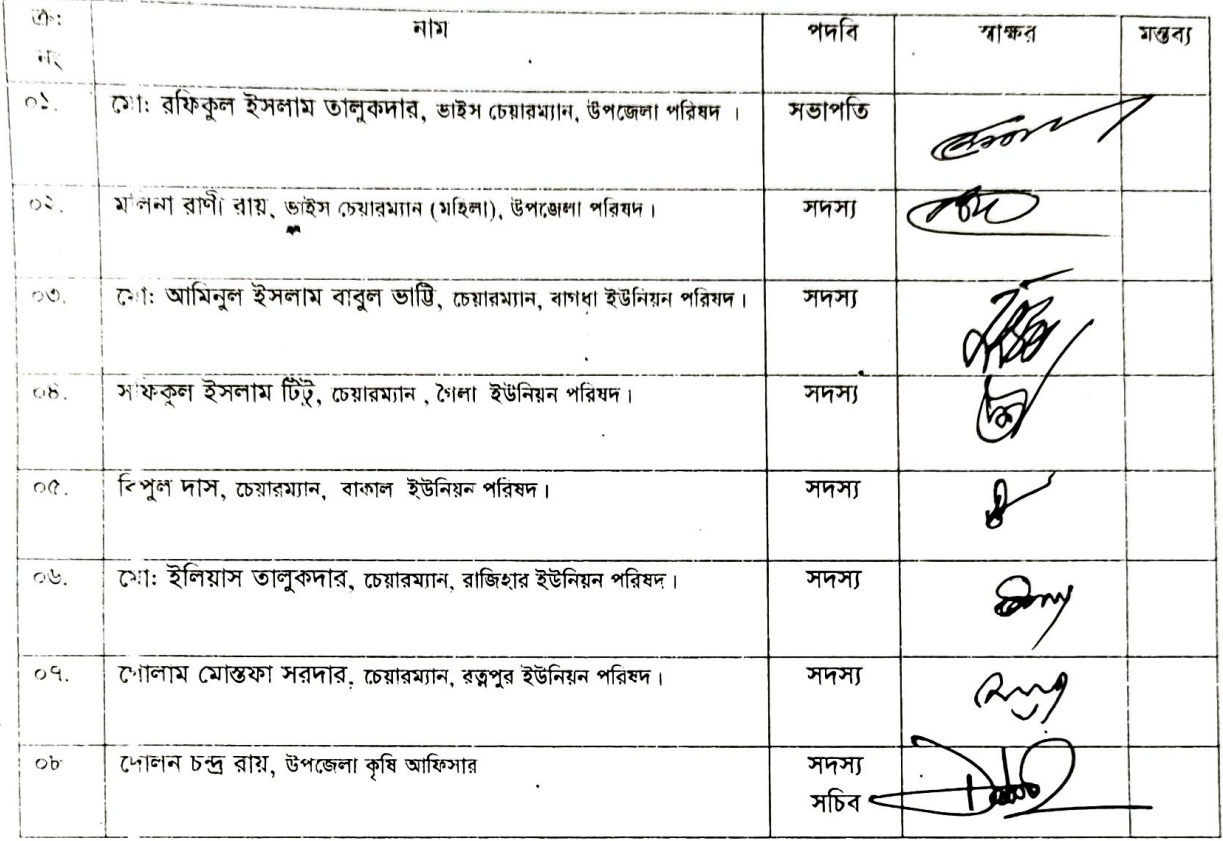 ক্র: নাম পদবি স্বাক্ষর মন্তব্য
নং
০১. মো: রফিকুল ইসলাম তালুকদার, ভাইস চেয়ারম্যান, উপজেলা পরিষদ । সভাপতি
০২. মলিনা রাণী রায়, ভাইস চেয়ারম্যান (মহিলা), উপজেলা পরিষদ । সদস্য
০৩. মো: আমিনুল ইসলাম বাবুল ভাট্টি, চেয়ারম্যান, বাগধা ইউনিয়ন পরিষদ । সদস্য
০৪. সফিকুল ইসলাম টিটু, চেয়ারম্যান , গৈলা ইউনিয়ন পরিষদ । সদস্য
০৫. বিপুল দাস, চেয়ারম্যান, বাকাল ইউনিয়ন পরিষদ । সদস্য
০৬. মো: ইলিয়াস তালুকদার, চেয়ারম্যান, রাজিহার ইউনিয়ন পরিষদ । সদস্য
০৭. গোলাম মোস্তফা সরদার, চেয়ারম্যান, রত্নপুর ইউনিয়ন পরিষদ । সদস্য
০৮ দোলন চন্দ্র রায়, উপজেলা কৃষি আফিসার সদস্য
সচিব